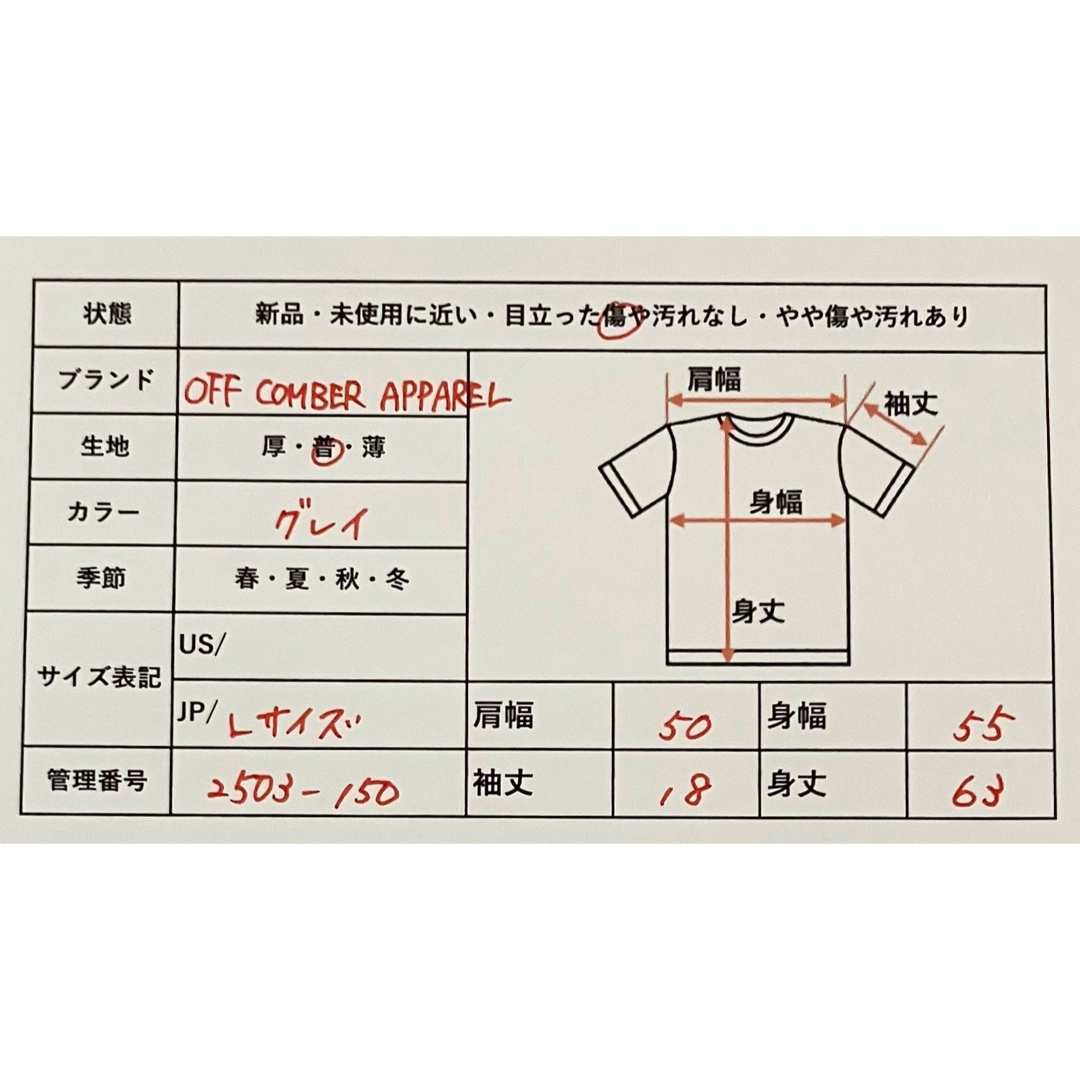 状態 新品・未使用に近い・目立った傷や汚れなし・やや傷や汚れあり
ブランド OFF COMBER APPAREL
生地 厚・普・薄
カラー グレイ
季節 春・夏・秋・冬
サイズ表記
US/
JP/ Lサイズ
管理番号 2503-150
肩幅
袖丈
身幅
身丈
肩幅 50 身幅 55
袖丈 18 身丈 63